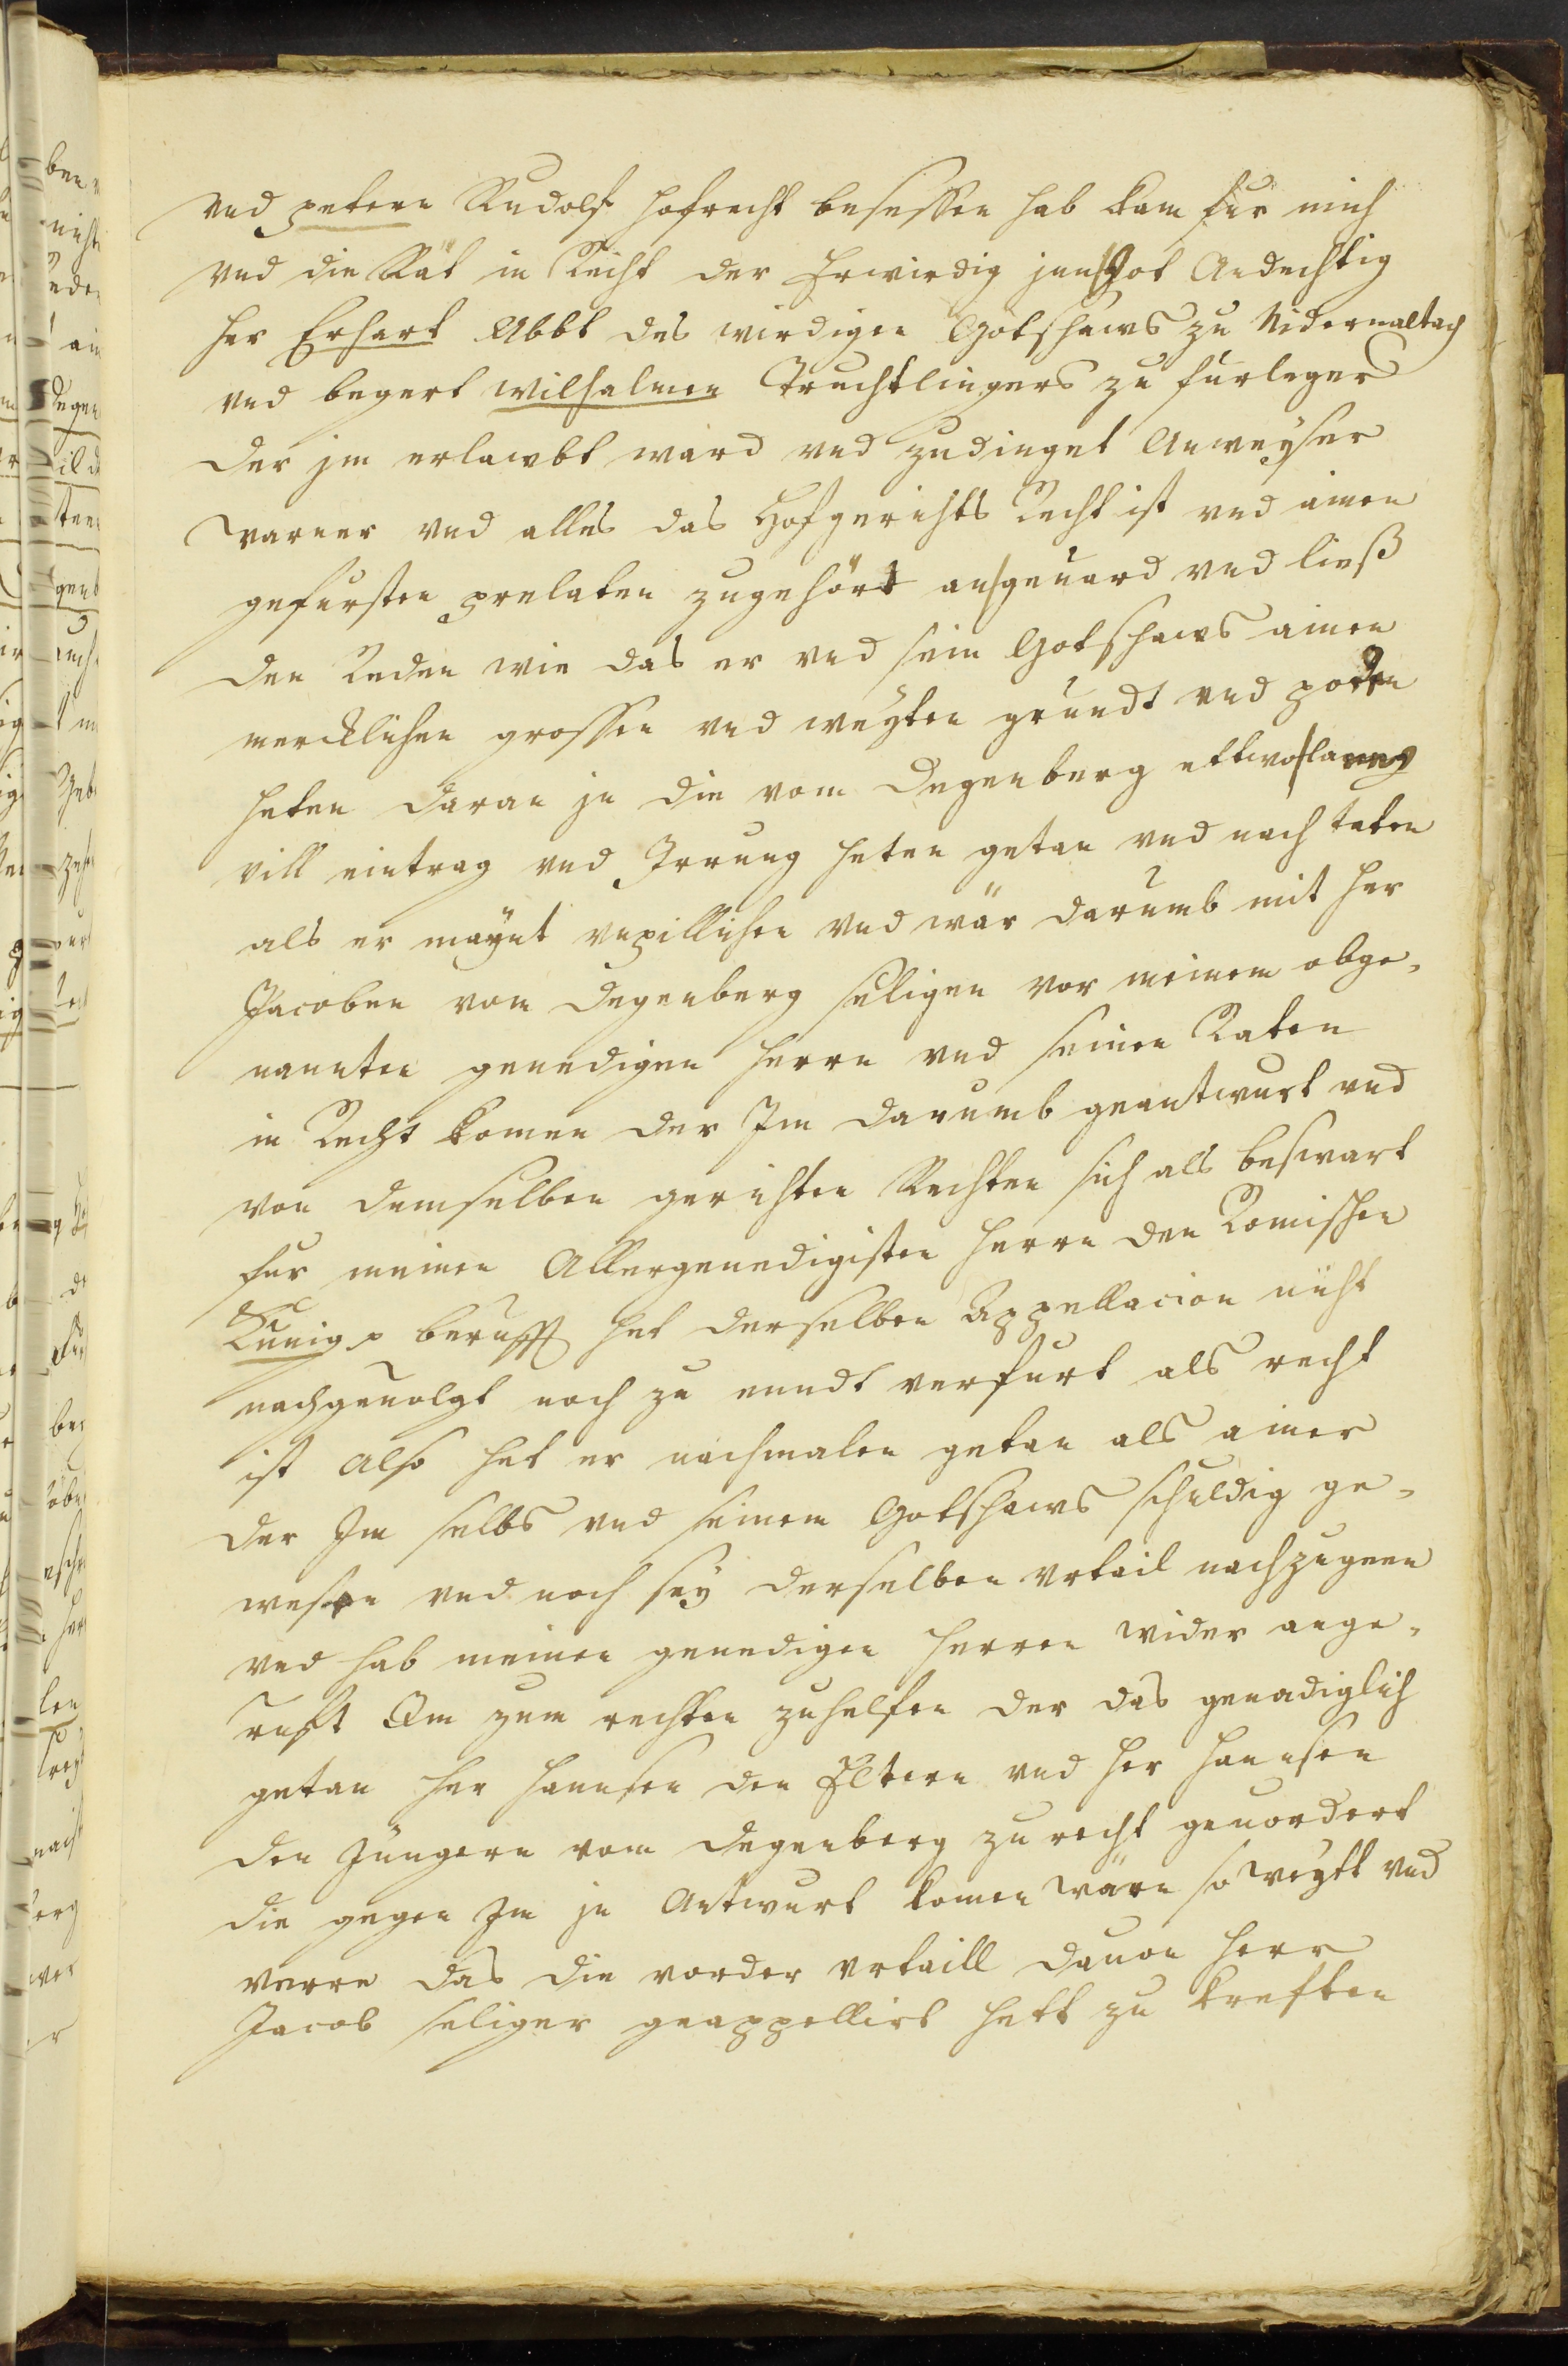 vnd petern Rudolf hofrecht besessen hab kam für mich
vnd die Rät in Recht der Erwirdig jnn Got Andechtig
her Erhart Abbt des wirdigen Gotshaws zu Nidernaltach
vnd begert Wilhalmen Truchtlingers zu fürleger
der jm erlawbt ward vnd zudinget Anweyser
Warner vnd alles das Hofgerichts Recht ist vnd ainen
gefursten prelaten zugehört ausgenard vnd ließ
den Reden wie das er vnd sein Gotshaws ainen
mercklichen grossen vnd weyten grundt vnd poden
heten daran jn die vom Degenberg ettwoslanng
vill eintrag vnd Irrung heten getan vnd nach taten
als er maynt vnpillichen vnd wär darumb mit her
Jacoben vom Degenberg seligen vor meinem obge-
nannten genedigen herrn vnd seinen Raten
in Recht komen der Im darumb geantwurt vnd
von demselben gerichten Rechten sich als beswart
fur meinen Allergenedigisten herrn den Romischen
Kunig beruefft het derselben Appellacion nicht
nachgeuolgt noch zu enndt verfurt als recht
ist also het er nachmalen getan als ainer
der Im selbs vnd seinem Gotshaws schuldig ge-
wesen vnd noch sey derselben vrtail nachzugeen
vnd hab meinen genedigen herren wider ange-
rufft Im zum rechten zuhelfen der das genadiglich
getan her hannsen den Eltern vnd her hannsen
den Jüngern vom Degenberg zu recht geuordert
die gegen Im jn Antwurt komen wärn so weytt vnd
verre das die vorder vrtaill dauon herr
Jacob seliger geappellirt hett zu krefften